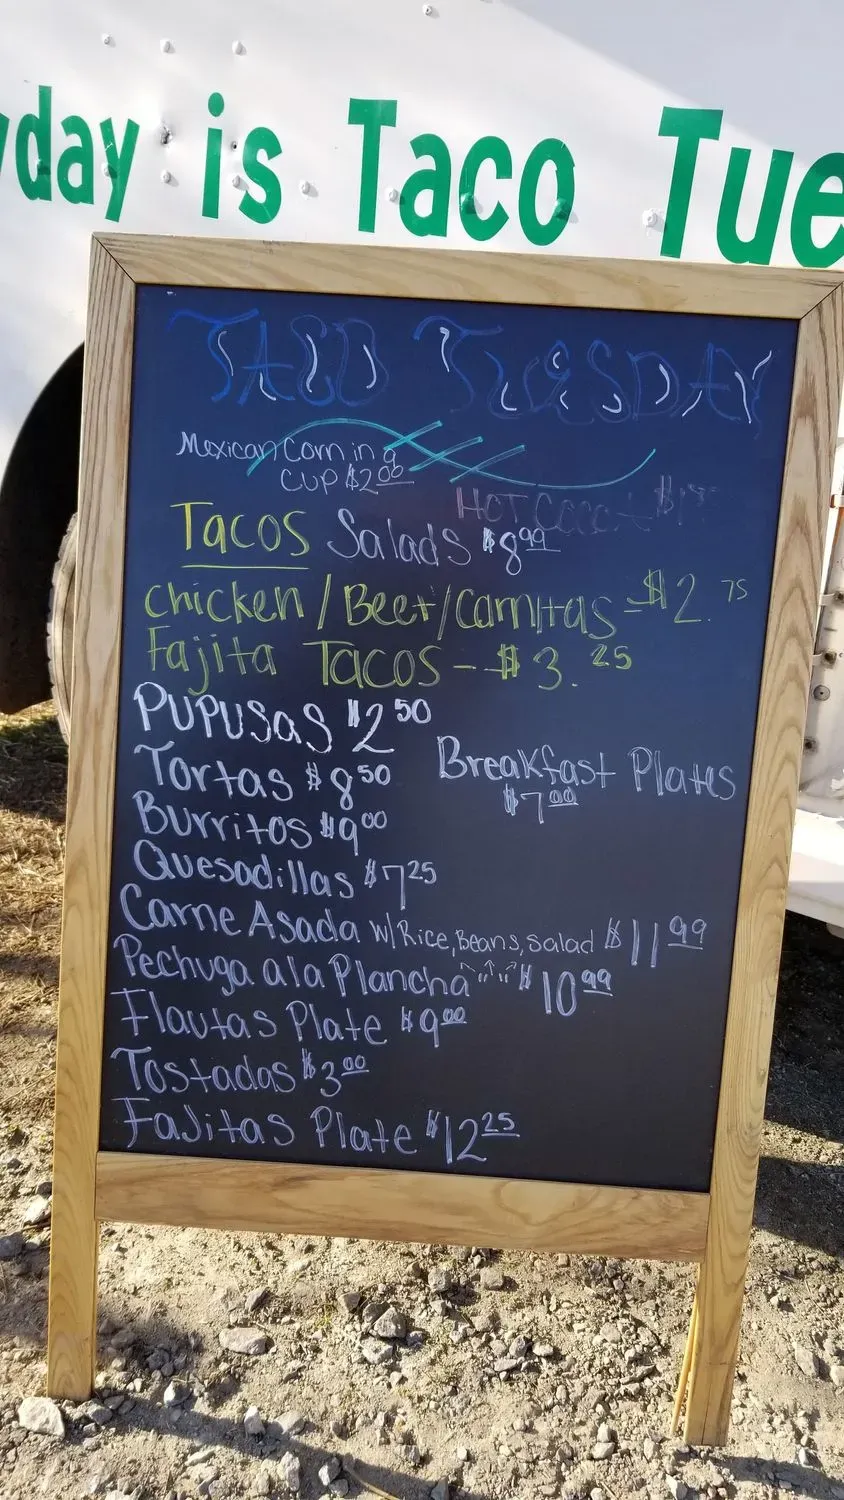 yday is Taco Tue
TACO TUESDAY
Mexican Corn in a
CUP $2.00
HOT Coco
Tacos Salads $8.99
Chicken / Beef / Carnitas - $2.75
Fajita Tacos - $3.25
PUPUSAS $2.50
Tortas $8.50
Breakfast Plates
$7.00
Burritos $9.00
Quesadillas $7.25
Carne Asada w/Rice, Beans, salad $11.99
Pechuga a la Plancha " " " $10.99
Flautas Plate $9.00
Tostadas $3.00
Fajitas Plate $12.25